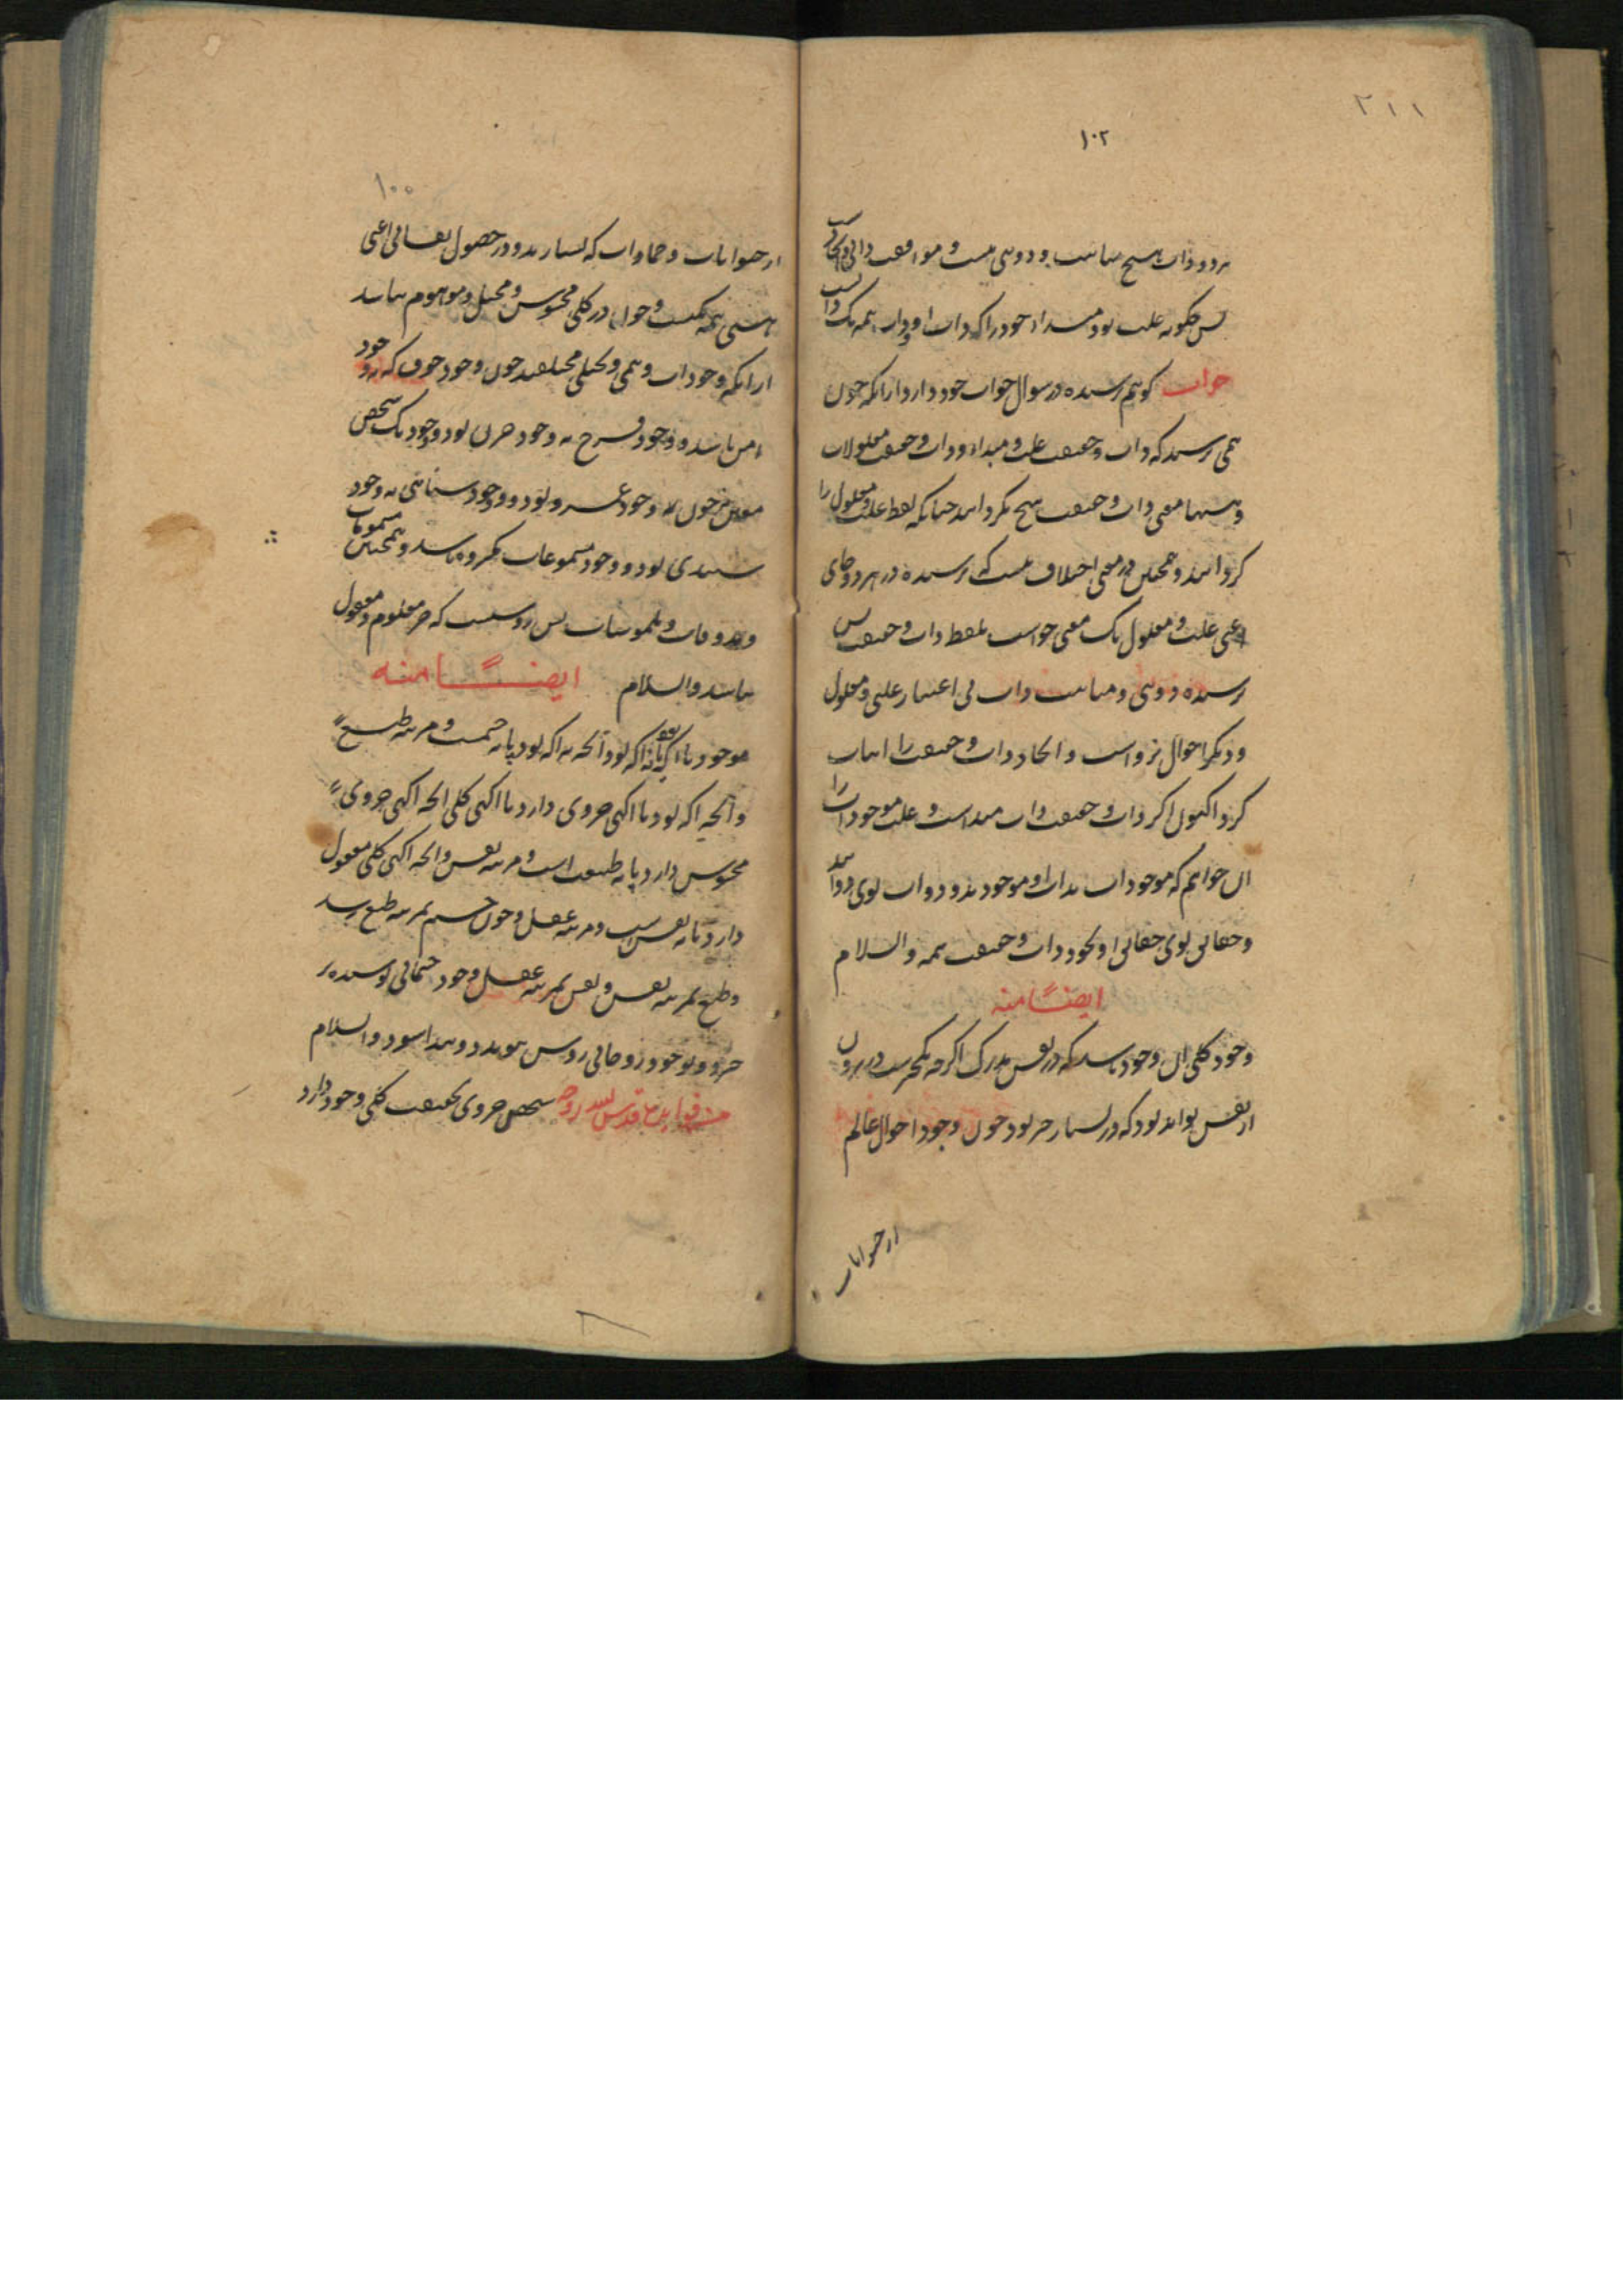 ۲۱۱
۱۰۲
هر دو ذات هیچ مباینت و دوئی نیست و موافقت ذاتی و
پس چگونه علت بود مبدا خود را که ذات او و ذات همه یک ذات
جواب گویم پرسنده در سوال جواب خود دارد از آنکه چون
همی پرسد که ذات و حقیقت علت و مبداء و ذات و حقیقت معلولات
معنی ذات و حقیقت هیچ نگرداند چنانکه لفظ علت و معلول را
گرداند و همچنین در معنی اختلاف نیست که پرسنده در هر دو جای
یعنی علت و معلول یک معنی خواست بلفظ ذات و حقیقت پس
پرسنده دوئی و مباینت ذات بی اعتبار علتی و معلولی
و دیگر احوال نزد است و اتحاد ذات و حقیقت را اثبات
کرد اکنون اگر ذات و حقیقت ذات مبداست و علت موجودات را
آن خواهیم که موجودات بذات او موجودند و ذوات بوی ذوات اند
و حقایق بوی حقایق او بخود ذات و حقیقت همه والسلام
ایضًا منه
وجود کلی آن وجود باشد که در نفس مدرک اگرچه یک چیزست در برون
از نفس تواند بود که در بسیار چیز بود چون وجود احوال عالم
از حیوانات
۱۰۰
از حیوانات و جمادات که بسیارند و در حصول نفسانی اعنی
هستی همه یکیست و چون در کلی محسوس و مخیل و موهوم نباشد
از آنکه وجودات وهمی و تخیلی مختلفند چون وجود خوف که نه وجود
امن باشد و وجود فرح نه وجود حزن بود و وجود یک شخص
معین چون زید نه وجود عمرو بود و وجود سپیدی نه وجود
بود و وجود مسموعات مکروه باشد و همچنین مشمومات
و مذوقات و ملموسات پس روشنست که جز معلوم و معقول
نباشد والسلام ایضًا منه
موجود یا آگه بود یا نه آگه بود آنچه نه آگه بود پایه جسمست و مرتبه طبع
و آنچه آگه بود یا آگهی جزوی دارد یا آگهی کلی آنچه آگهی جزوی
محسوس دارد پایه طبیعت است و مرتبه نفس و آنچه آگهی کلی معقول
دارد پایه نفس است و مرتبه عقل و چون جسم بمرتبه طبع رسد
و طبع بمرتبه نفس و نفس بمرتبه عقل وجود جسمانی پوشیده تر
شود و وجود روحانی روشن و پیدا شود والسلام
من فوایده قدس الله روحه شخص جزوی بحقیقت کلی وجود دارد